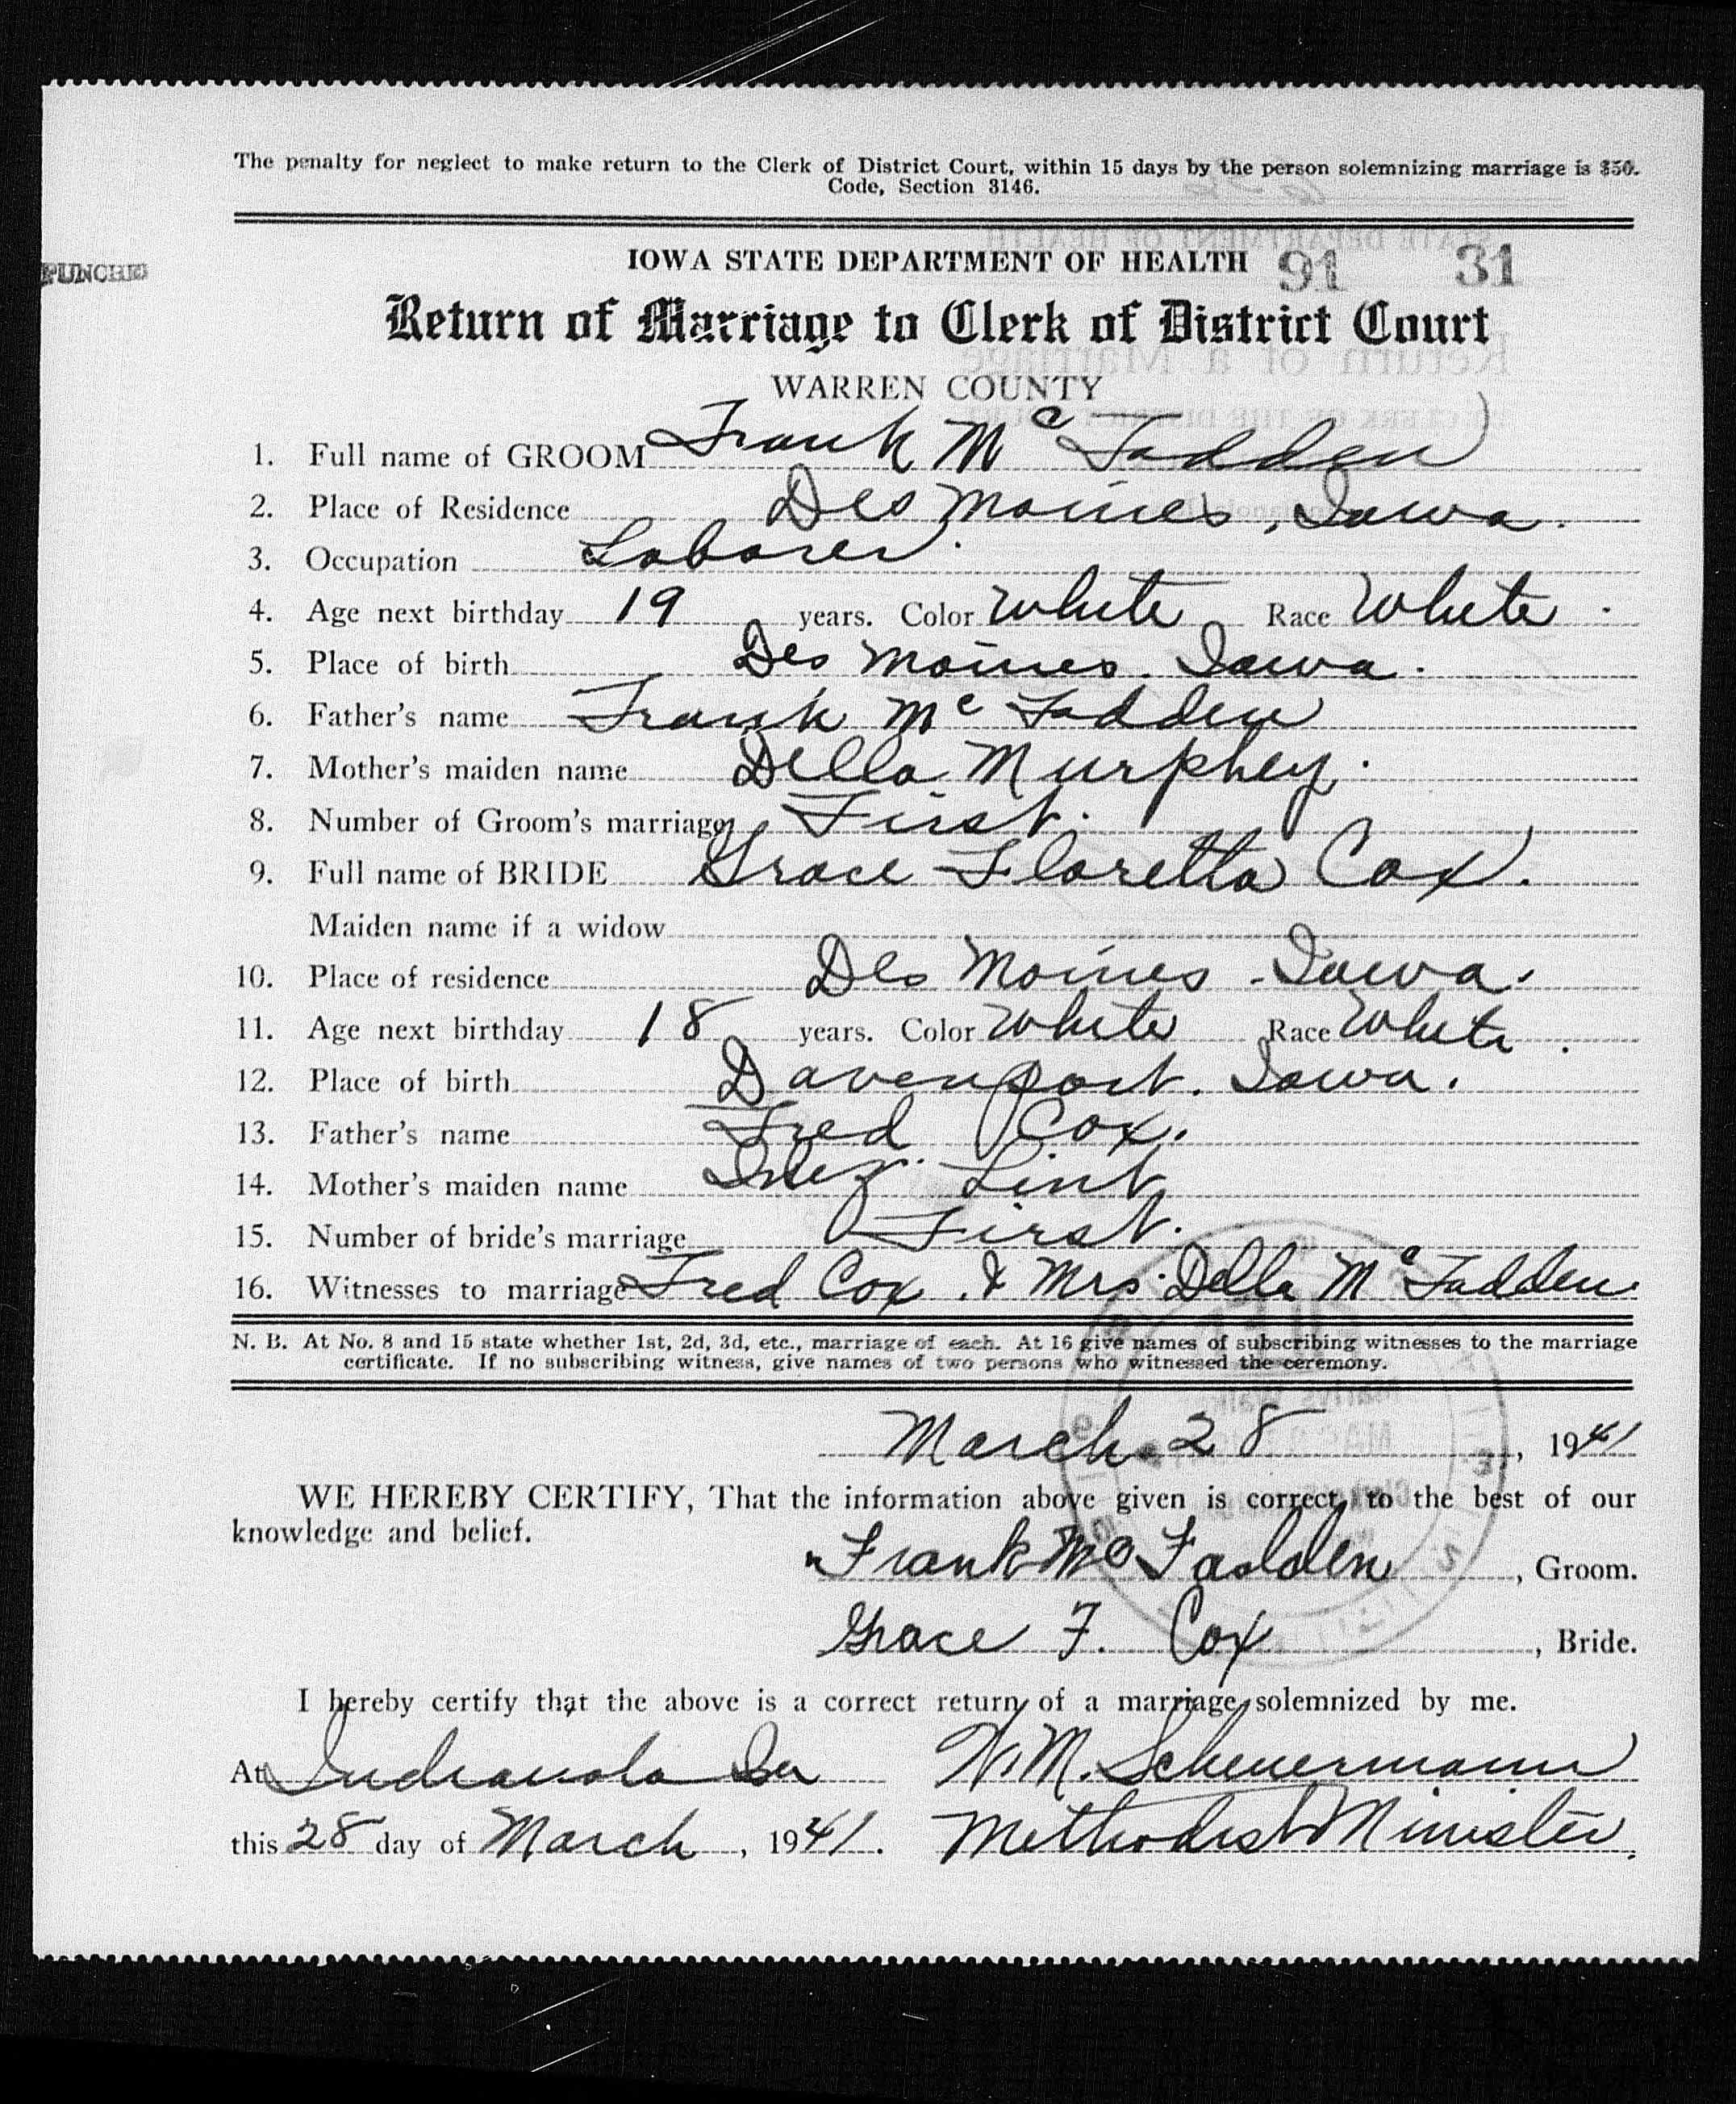 The penalty for neglect to make return to the Clerk of District Court, within 15 days by the person solemnizing marriage is $50.
Code, Section 3146.
PUNCHED
IOWA STATE DEPARTMENT OF HEALTH 91 31
Return of Marriage to Clerk of District Court
WARREN COUNTY
1. Full name of GROOM Frank Mc Fadden
2. Place of Residence Des Moines, Iowa.
3. Occupation Laborer.
4. Age next birthday 19 years. Color White Race White.
5. Place of birth Des Moines. Iowa.
6. Father's name Frank Mc Fadden
7. Mother's maiden name Della Murphey.
8. Number of Groom's marriage First.
9. Full name of BRIDE Grace Floretta Cox.
Maiden name if a widow
10. Place of residence Des Moines - Iowa.
11. Age next birthday 18 years. Color White Race White.
12. Place of birth Davenport. Iowa.
13. Father's name Fred Cox.
14. Mother's maiden name Inez Lint
15. Number of bride's marriage First.
16. Witnesses to marriage Fred Cox. & Mrs. Della Mc Fadden
N. B. At No. 8 and 15 state whether 1st, 2d, 3d, etc., marriage of each. At 16 give names of subscribing witnesses to the marriage
certificate. If no subscribing witness, give names of two persons who witnessed the ceremony.
March 28, 1941
WE HEREBY CERTIFY, That the information above given is correct, to the best of our
knowledge and belief.
Frank Mc Fadden, Groom.
Grace F. Cox, Bride.
I hereby certify that the above is a correct return of a marriage solemnized by me.
At Indianola Ia W. M. Scheuermann
this 28 day of March, 1941. Methodist Minister.